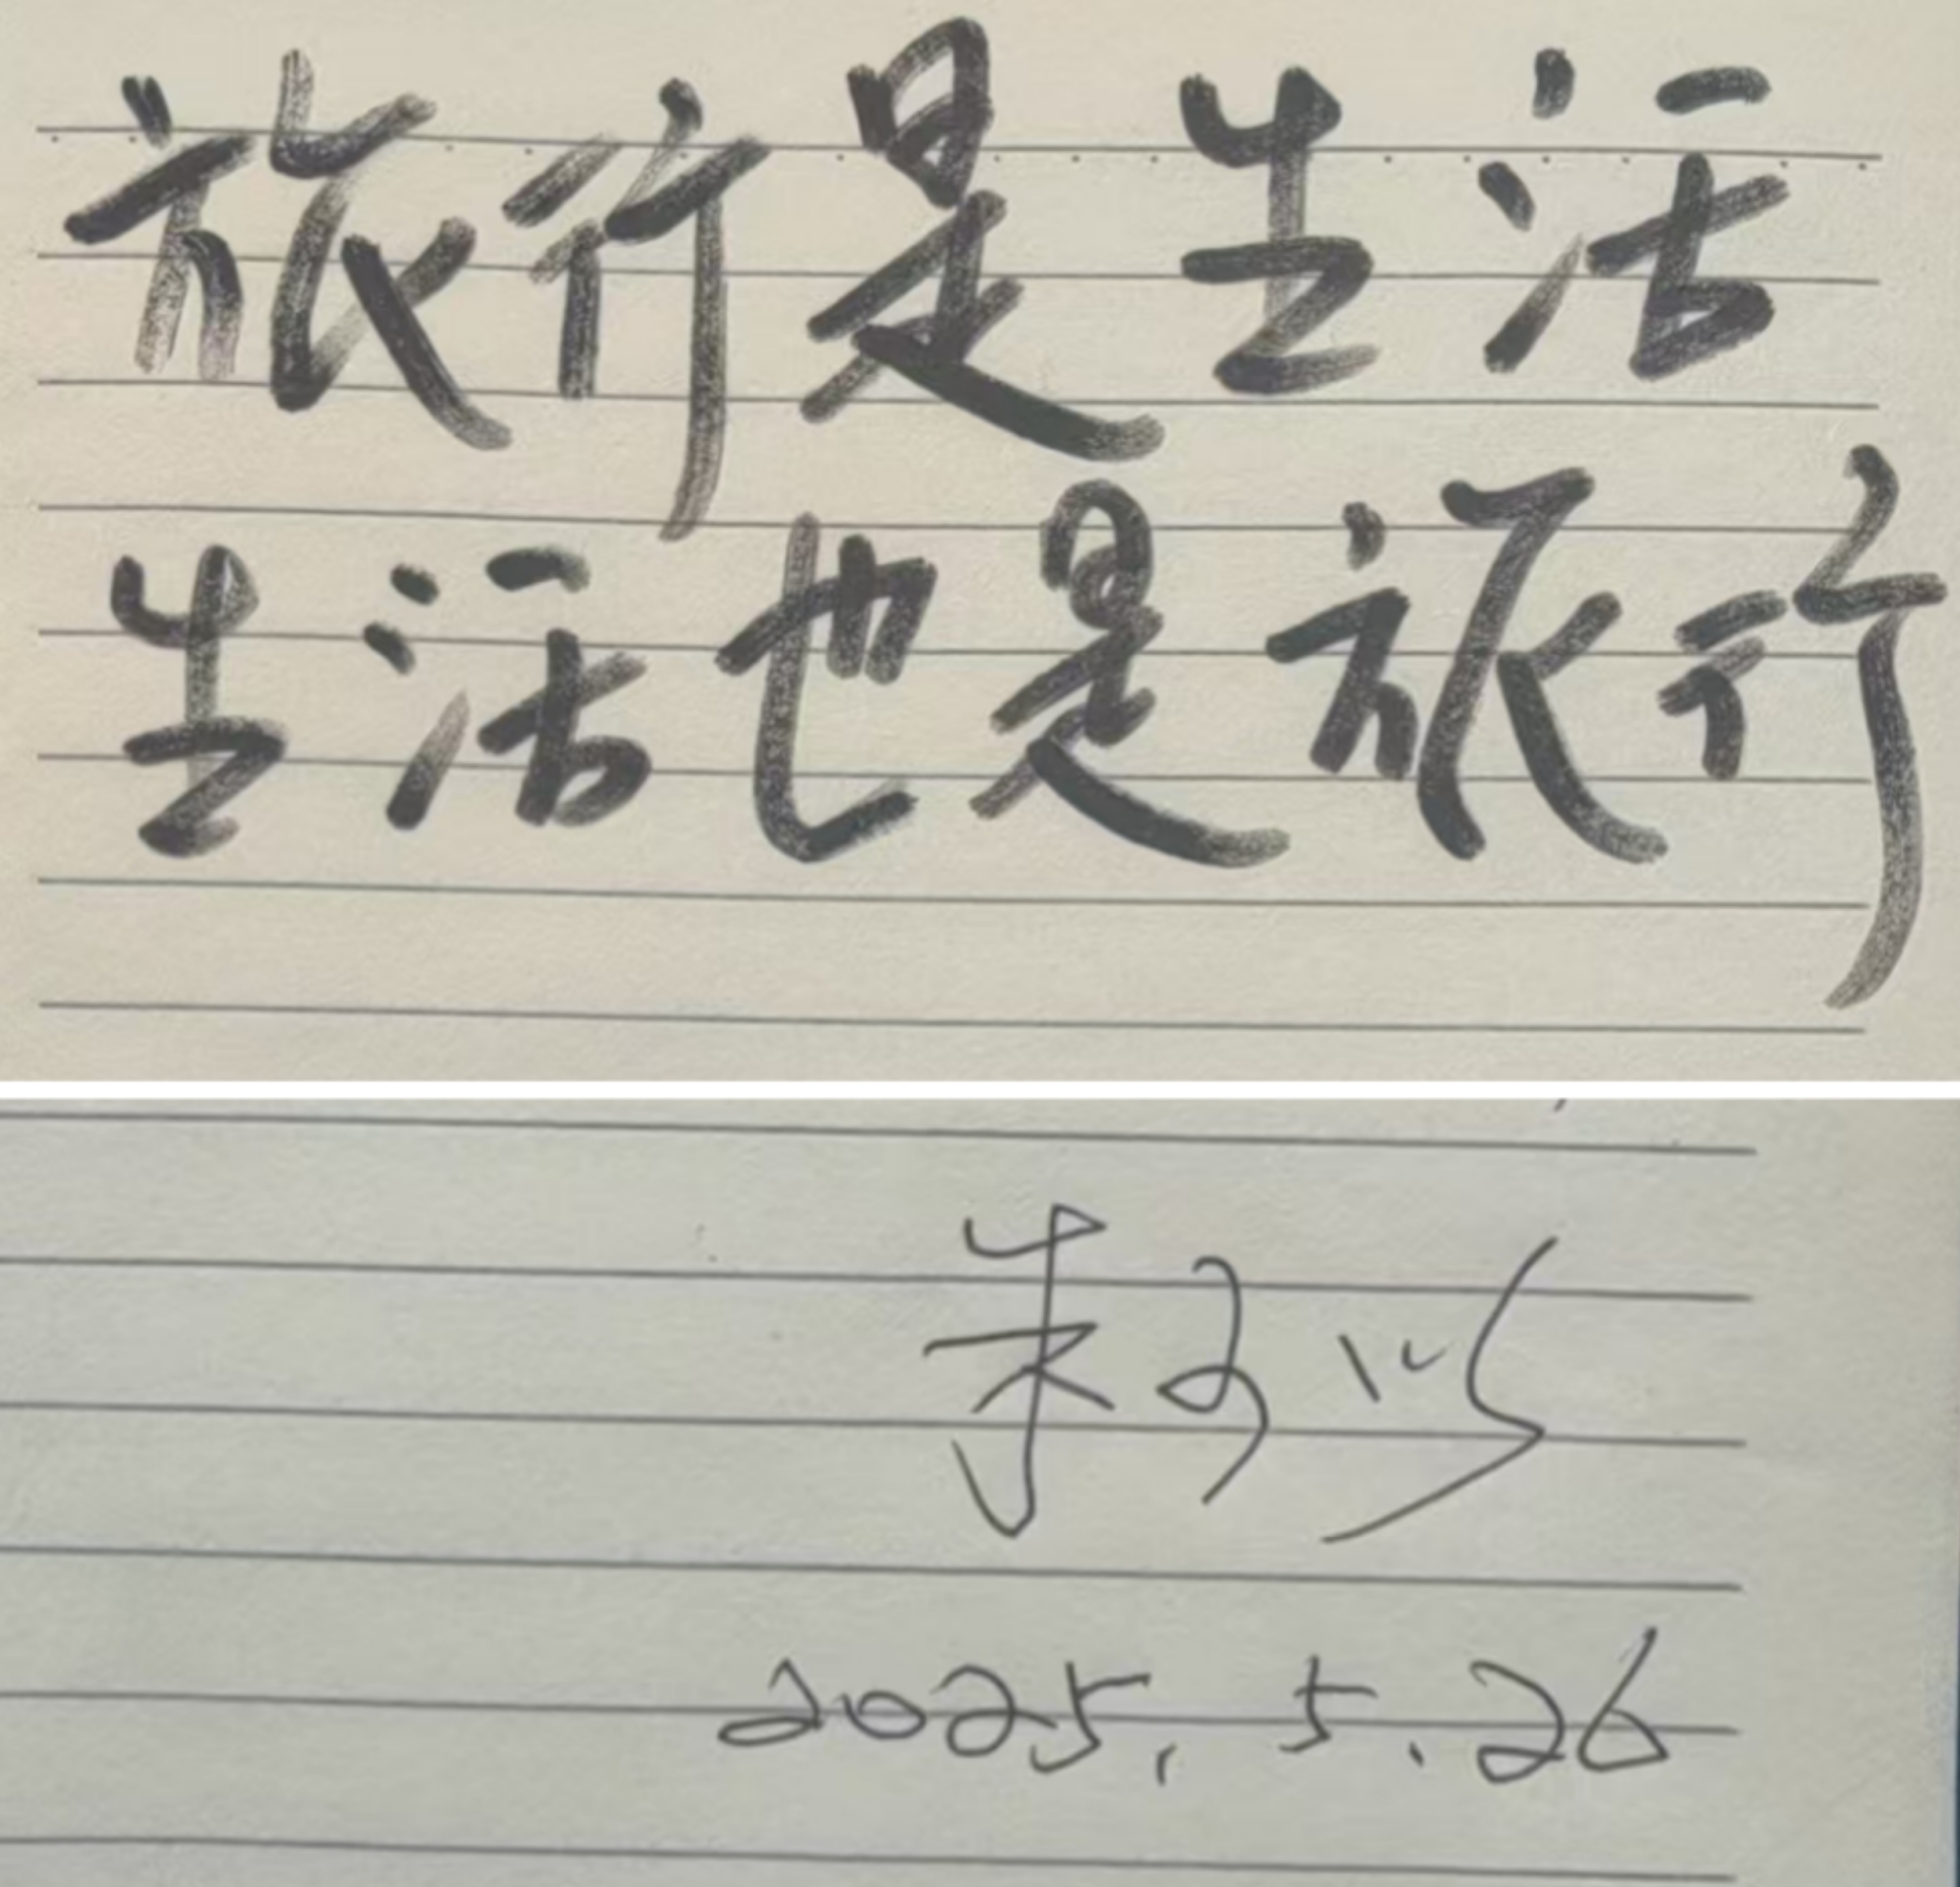 旅行是生活
生活也是旅行
2025.5.26